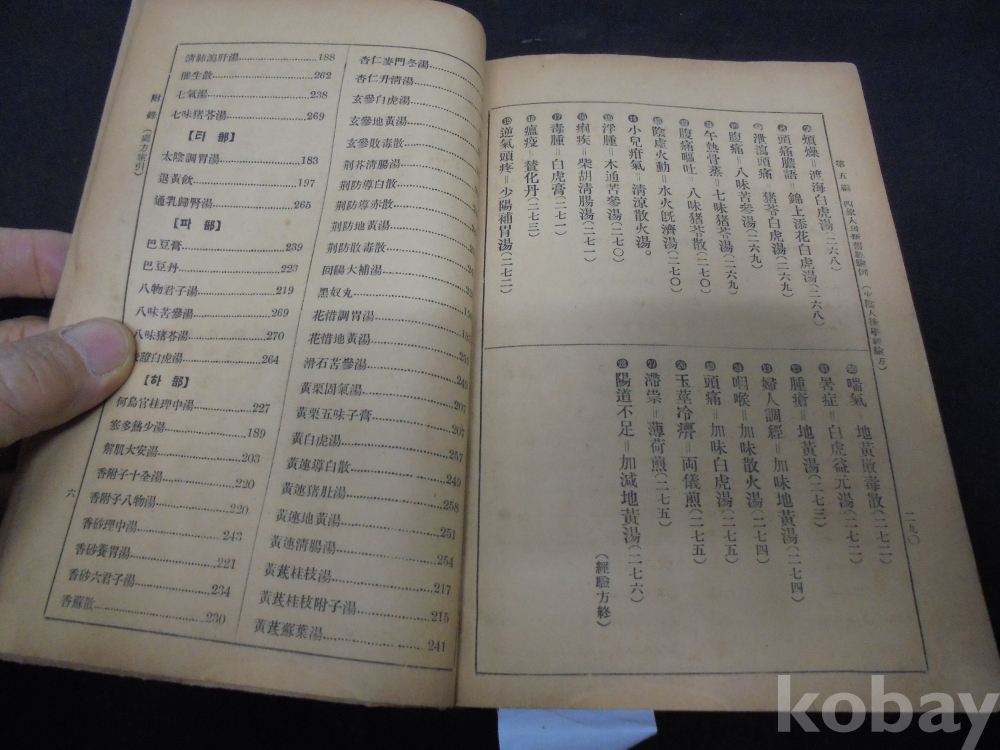 淸肺瀉肝湯 188
催生散 262
七氣湯 238
七味猪苓湯 269
【티 部】
太陰調胃湯 183
退黃飮 197
通乳歸腎湯 265
【파 部】
巴豆膏 239
巴豆丹 223
八物君子湯 219
八味苦參湯 269
八味猪苓湯 270
證白虎湯 264
【하 部】
何烏官桂理中湯 227
寒多熱少湯 189
解肌大安湯 203
香附子十全湯 220
香附子八物湯 220
香砂理中湯 243
香砂養胃湯 221
香砂六君子湯 234
香蘇散 230
杏仁麥門冬湯
杏仁升淸湯
玄參白虎湯
玄參地黃湯
玄參敗毒散
荊芥淸腸湯
荊防導白散
荊防導赤散
荊防地黃湯
荊防敗毒散
回陽大補湯
黑奴丸
花惜調胃湯
花惜地黃湯
滑石苦參湯
黃栗固氣湯 207
黃栗五味子膏 207
黃白虎湯 257
黃連導白散 249
黃連猪肚湯 258
黃連地黃湯 251
黃連淸腸湯 254
黃芪桂枝湯 217
黃芪桂枝附子湯 215
黃芪蘇葉湯 241
附錄
六
第五篇
二九〇
煩燥=渡海白虎湯(二六八)
頭痛膽語=錦上添花白虎湯(二六八)
泄瀉頭痛 猪苓白虎湯(二六九)
腹痛=八味苦參湯(二六九)
午熱骨蒸=七味猪苓湯(二六九)
腹痛嘔吐=八味猪苓散(二七〇)
陰虛火動=水火旣濟湯(二七〇)
小兒疳氣=淸凉散火湯。
浮腫=木通苦參湯(二七〇)
痢疾=柴胡淸腸湯(二七一)
毒腫=白虎膏(二七一)
瘟疫=薑化丹(二七三)
逆氣頭疼=少陽補胃湯(二七二)
喘氣 地黃敗毒散(二七二)
暑症=白虎益元湯(二七二)
腫瘡=地黃湯(二七三)
婦人調經=加味地黃湯(二七四)
咽喉=加味散火湯(二七四)
頭痛=加味白虎湯(二七五)
玉莖冷痹=両儀煎(二七五)
滯祟=薄荷煎(二七五)
陽道不足=加減地黃湯(二七六)
(經驗方終)
kobay